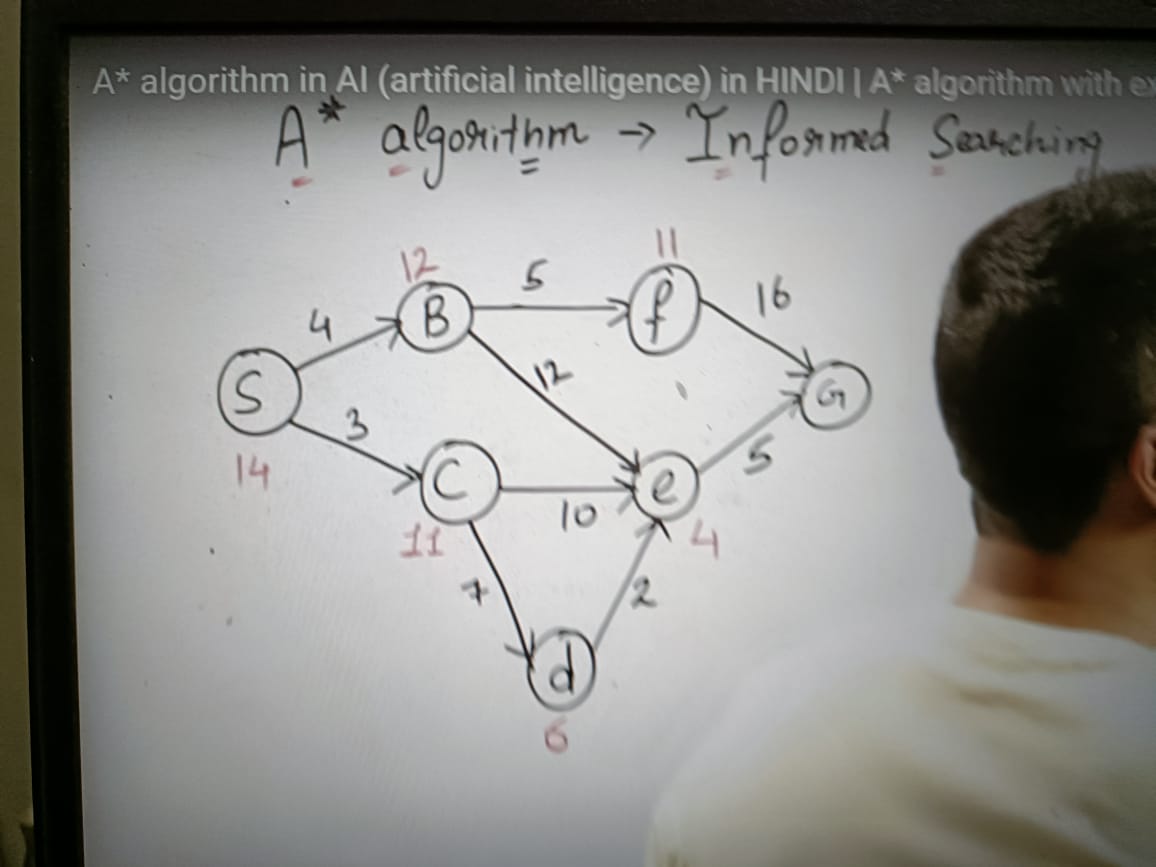 A* algorithm in AI (artificial intelligence) in HINDI | A* algorithm with
A* algorithm → Informed Searching
11
12
5
16
4
B
f
12
S
G
3
14
C
e
5
10
11
4
7
2
d
6